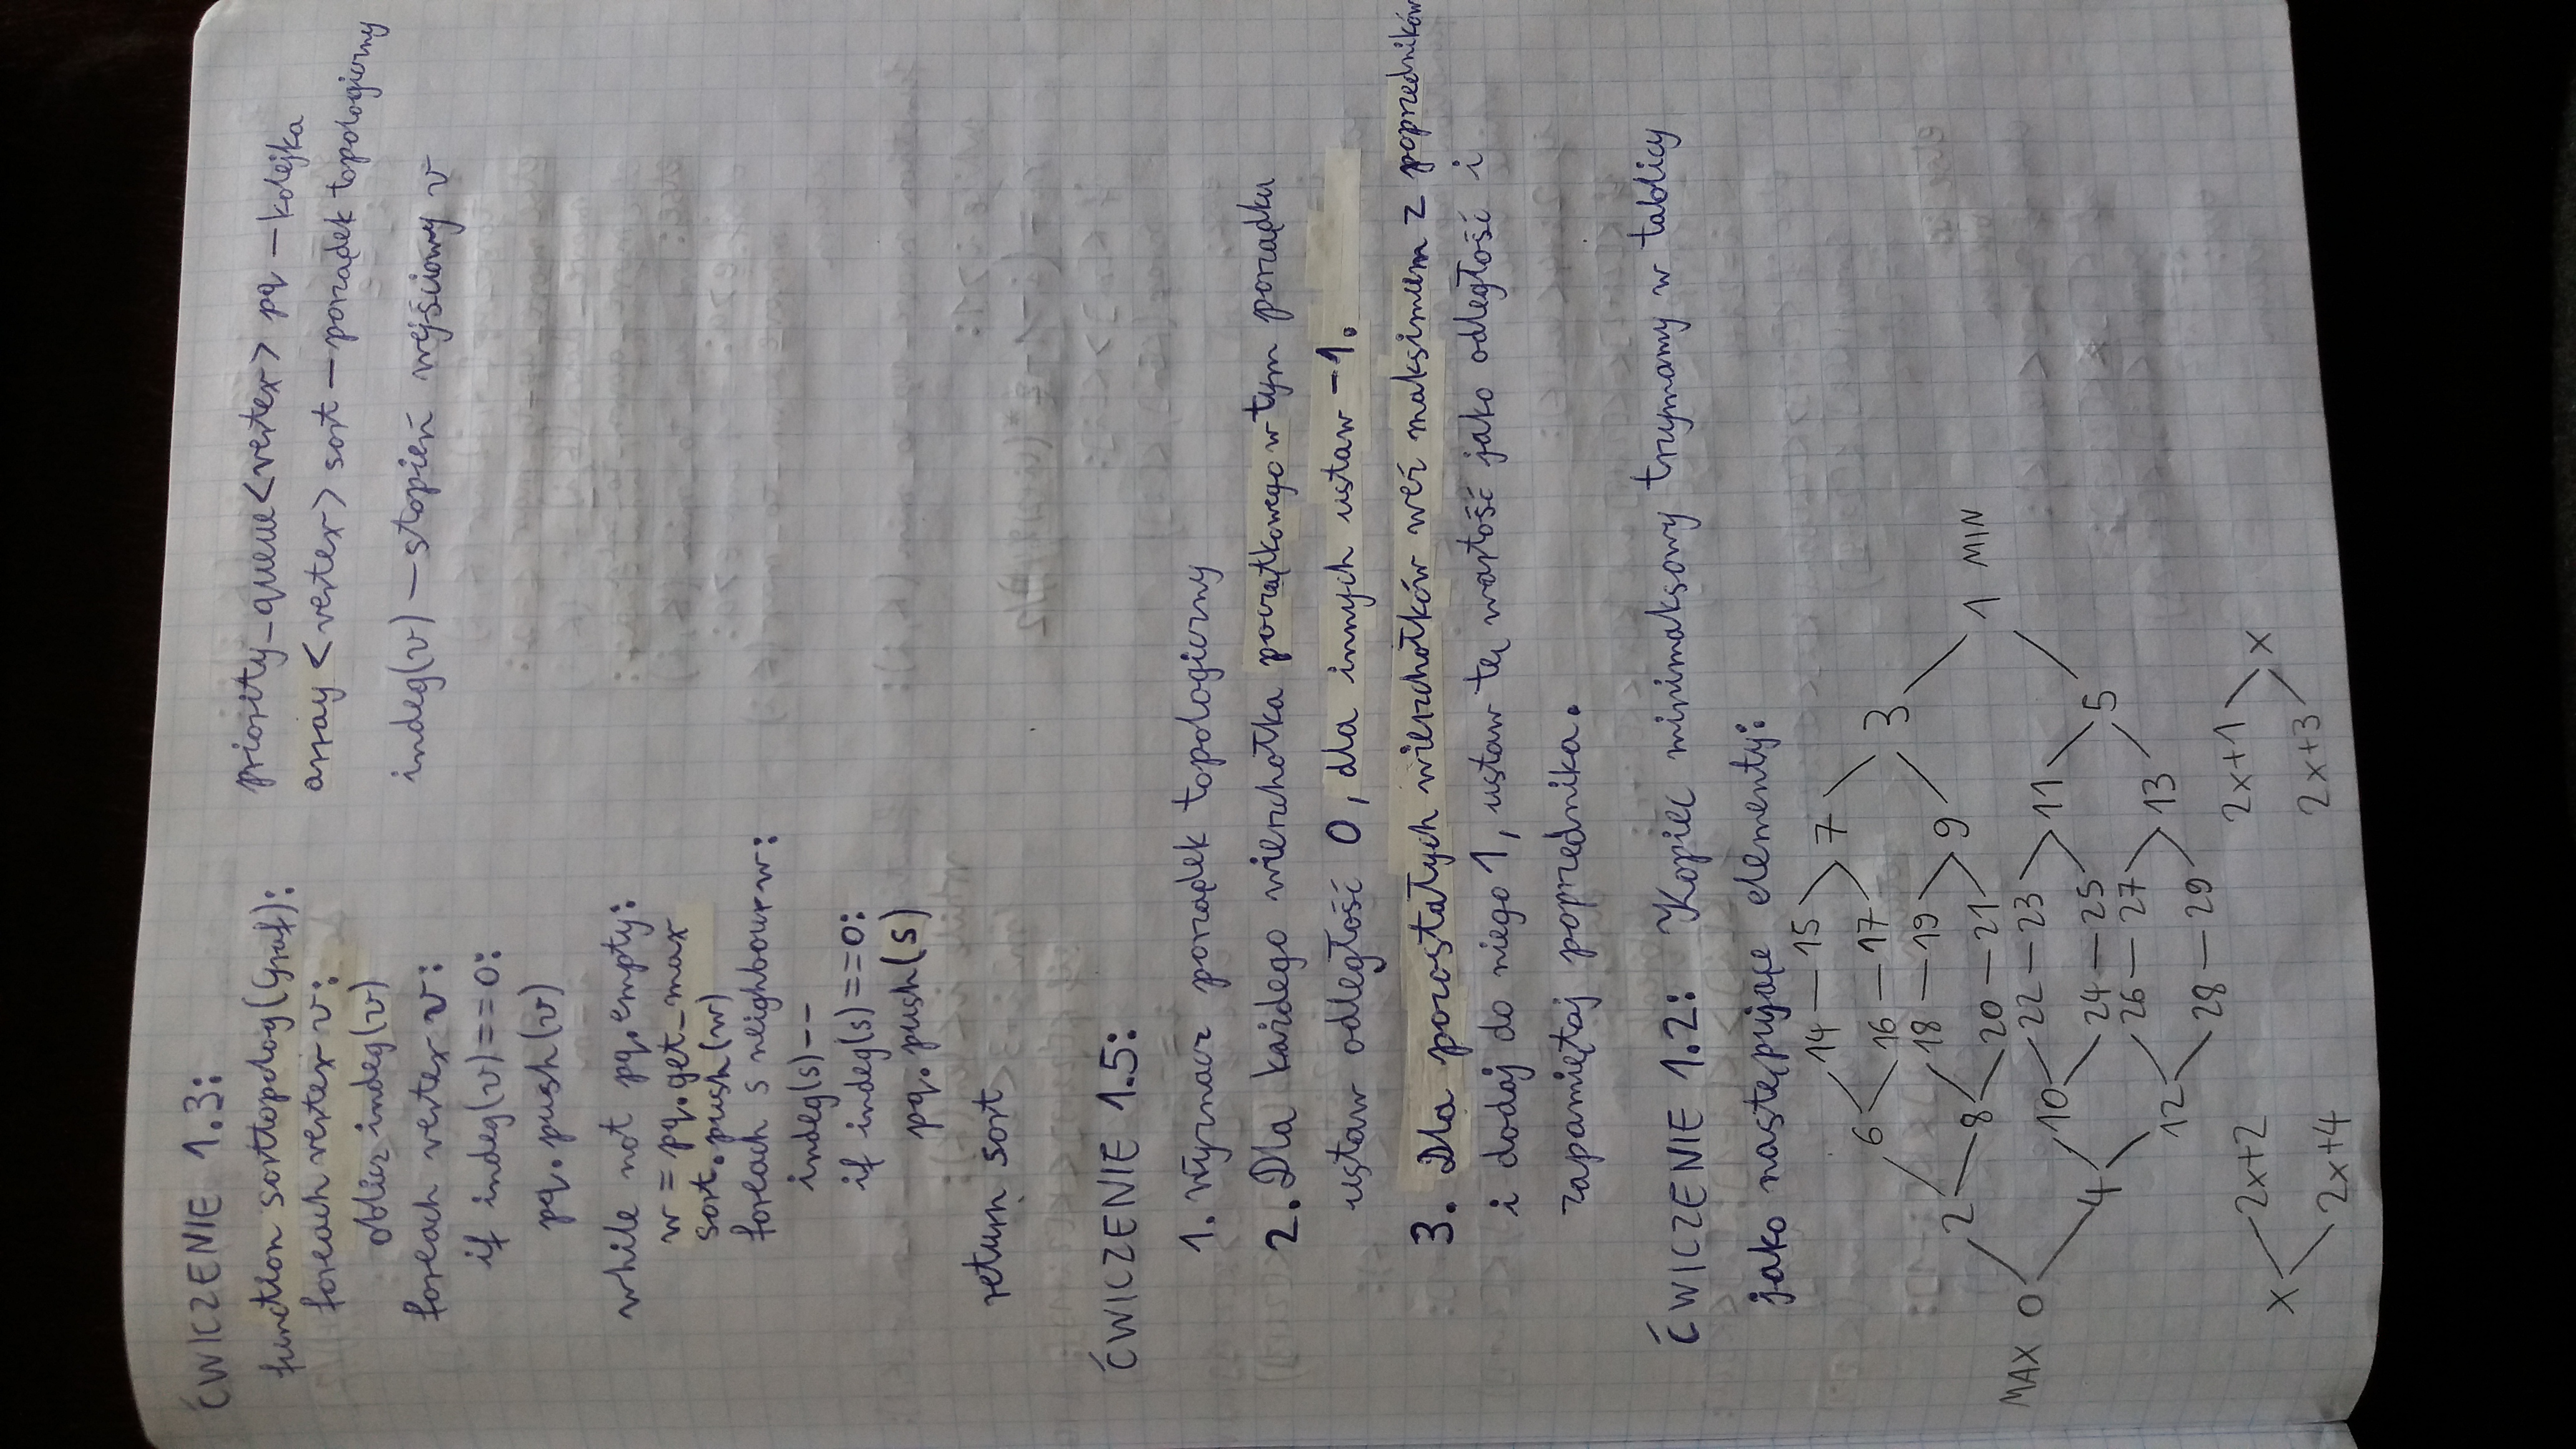 ĆWICZENIE 1.3:
function sorttopolog(Graf):
foreach vertex v:
oblicz indeg(v)
foreach vertex v:
if indeg(v)==0:
pq.push(v)
while not pq.empty:
w = pq.get_max
sort.push(w)
foreach s neighbour w:
indeg(s)--
if indeg(s)==0:
pq.push(s)
return sort
priority_queue<vertex> pq – kolejka
array <vertex> sort – porządek topologiczny
indeg(v) – stopień wejściowy v
ĆWICZENIE 1.5:
1. Wyznacz porządek topologiczny
2. Dla każdego wierzchołka początkowego w tym porządku
ustaw odległość 0, dla innych ustaw -1.
3. Dla pozostałych wierzchołków weź maksimum z poprzedników
i dodaj do niego 1, ustaw tę wartość jako odległość i
zapamiętaj poprzednika.
ĆWICZENIE 1.2: Kopiec minimaksowy trzymamy w tablicy
jako następujące elementy:
14 — 15
7
6
16 — 17
3
18 — 19
2
8
9
20 — 21
1 MIN
MAX 0
22 — 23
10
11
24 — 25
4
5
26 — 27
12
13
28 — 29
2x+2
x
2x+4
2x+1
x
2x+3